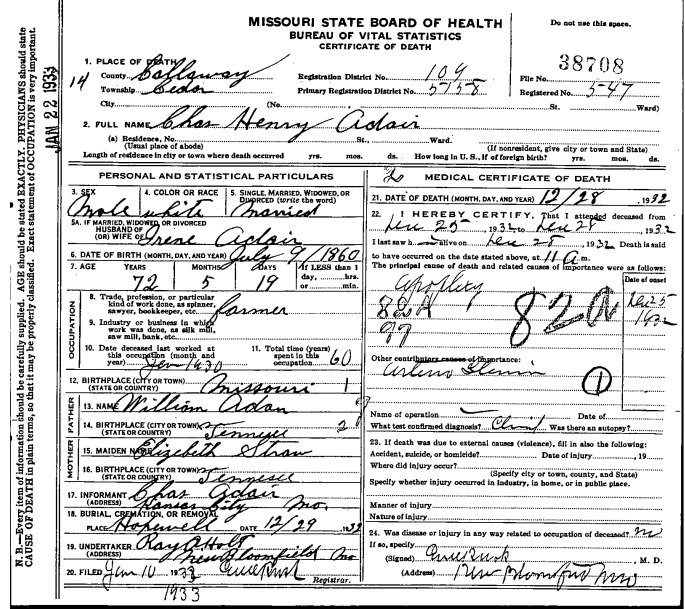 MISSOURI STATE BOARD OF HEALTH
BUREAU OF VITAL STATISTICS
CERTIFICATE OF DEATH
Do not use this space.
38708
1. PLACE OF DEATH
14 County Callaway Registration District No. 109 File No.
Township Cedar Primary Registration District No. 5158 Registered No. 547
City (No. St. Ward)
2. FULL NAME Chas Henry Adair
(a) Residence, No. St., Ward.
(Usual place of abode) (If nonresident, give city or town and State)
Length of residence in city or town where death occurred yrs. mos. ds. How long in U. S., if of foreign birth? yrs. mos. ds.
PERSONAL AND STATISTICAL PARTICULARS
3. SEX 4. COLOR OR RACE 5. SINGLE, MARRIED, WIDOWED, OR
DIVORCED (write the word)
Male white Married
5A. IF MARRIED, WIDOWED, OR DIVORCED
HUSBAND OF
(OR) WIFE OF Irene Adair
6. DATE OF BIRTH (MONTH, DAY, AND YEAR) July 9/1860
7. AGE YEARS MONTHS DAYS If LESS than 1
day, hrs.
or min.
72 5 19
OCCUPATION
8. Trade, profession, or particular
kind of work done, as spinner,
sawyer, bookkeeper, etc. farmer
9. Industry or business in which
work was done, as silk mill,
saw mill, bank, etc.
10. Date deceased last worked at
this occupation (month and
year) Jan 1930
11. Total time (years)
spent in this
occupation 60
12. BIRTHPLACE (CITY OR TOWN)
(STATE OR COUNTRY) Missouri 1
FATHER
13. NAME William Adair
14. BIRTHPLACE (CITY OR TOWN)
(STATE OR COUNTRY) Tennessee 2
MOTHER
15. MAIDEN NAME Elizebeth Straw
16. BIRTHPLACE (CITY OR TOWN)
(STATE OR COUNTRY) Tennessee
17. INFORMANT Chas Adair
(ADDRESS) Kansas City Mo.
18. BURIAL, CREMATION, OR REMOVAL
PLACE Hopewell DATE 12/29 1932
19. UNDERTAKER Ray A Holt
(ADDRESS) New Bloomfield Mo
20. FILED Jan 10 1933
Registrar.
1933
MEDICAL CERTIFICATE OF DEATH
21. DATE OF DEATH (MONTH, DAY, AND YEAR) 12/28, 1932
22. I HEREBY CERTIFY, That I attended deceased from
Dec 25, 1932 to Dec 28, 1932
I last saw h alive on Dec 28, 1932 Death is said
to have occurred on the date stated above, at 11 a m.
The principal cause of death and related causes of importance were as follows:
Date of onset
Apoplexy Dec 25
1932
82A
97
82a
Other contributory causes of importance:
1
Name of operation Date of
What test confirmed diagnosis? Was there an autopsy?
23. If death was due to external causes (violence), fill in also the following:
Accident, suicide, or homicide? Date of injury , 19
Where did injury occur?
(Specify city or town, county, and State)
Specify whether injury occurred in industry, in home, or in public place.
Manner of injury
Nature of injury
24. Was disease or injury in any way related to occupation of deceased? no
If so, specify
(Signed) , M. D.
(Address) New Bloomfield Mo
N. B.—Every item of information should be carefully supplied. AGE should be stated EXACTLY. PHYSICIANS should state
CAUSE OF DEATH in plain terms, so that it may be properly classified. Exact statement of OCCUPATION is very important.
JAN 22 1933